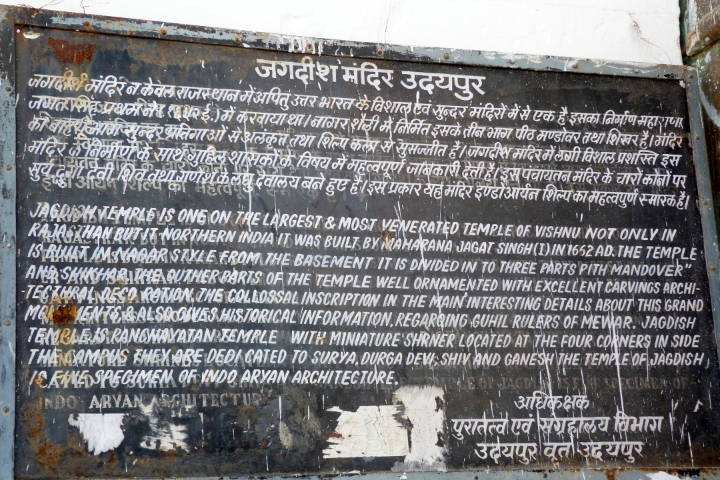 जगदीश मंदिर उदयपुर
जगदीश मंदिर न केवल राजस्थान में अपितु उत्तर भारत के विशाल एवं सुन्दर मंदिरों में से एक है इसका निर्माण महाराणा
जगत सिंह प्रथम ने ई.) में करवाया था। नागर शैली में निर्मित इसके तीन भाग पीठ मण्डोवर तथा शिखर है। मंदिर
की बाह्य भाग सुन्दर प्रतिमाओं से अलंकृत तथा शिल्प कला से सुसज्जीत है। जगदीश मंदिर में लगी विशाल प्रशस्ति इस
मंदिर के निर्माण के साथ गुहिल शासकों के विषय में महत्वपूर्ण जानकारी देती है। इस पंचायतन मंदिर के चारों कोनों पर
सुर्य दुर्गा देवी शिव तथा गणेश के लघु देवालय बने हुए है। इस प्रकार यह मंदिर इण्डो आर्यन शिल्प का महत्वपुर्ण स्मारक है।
JAGDISH TEMPLE IS ONE ON THE LARGEST & MOST VENERATED TEMPLE OF VISHNU NOT ONLY IN
RAJASTHAN BUT IN NORTHERN INDIA IT WAS BUILT BY MAHARANA JAGAT SINGH(I) IN 1652 AD. THE TEMPLE
IS BUILT IN NAGAR STYLE FROM THE BASEMENT IT IS DIVIDED IN TO THREE PARTS PITH MANDOVER"
AND SHIKHAR. THE OUTHER PARTS OF THE TEMPLE WELL ORNAMENTED WITH EXCELLENT CARVINGS ARCHI-
TECTURAL DECO RATION, THE COLLOSSAL INSCRIPTION IN THE MAIN INTERESTING DETAILS ABOUT THIS GRAND
MONUMENTS & ALSO GIVES HISTORICAL INFORMATION. REGARGING GUHIL RULERS OF MEWAR. JAGDISH
TEMPLE IS PANCHAYATAN TEMPLE WITH MINIATURE SHRINER LOCATED AT THE FOUR CORNERS IN SIDE
THE CAMPUS THEY ARE DEDI CATED TO SURYA, DURGA DEVI, SHIV AND GANESH THE TEMPLE OF JAGDISH
IS THE SPECIMEN OF INDO ARYAN ARCHITECTURE.
INDO ARYAN ARCHITECTURE
अधिक्षक
पुरातत्व एवं संग्रहालय विभाग
उदयपुर वृत उदयपुर